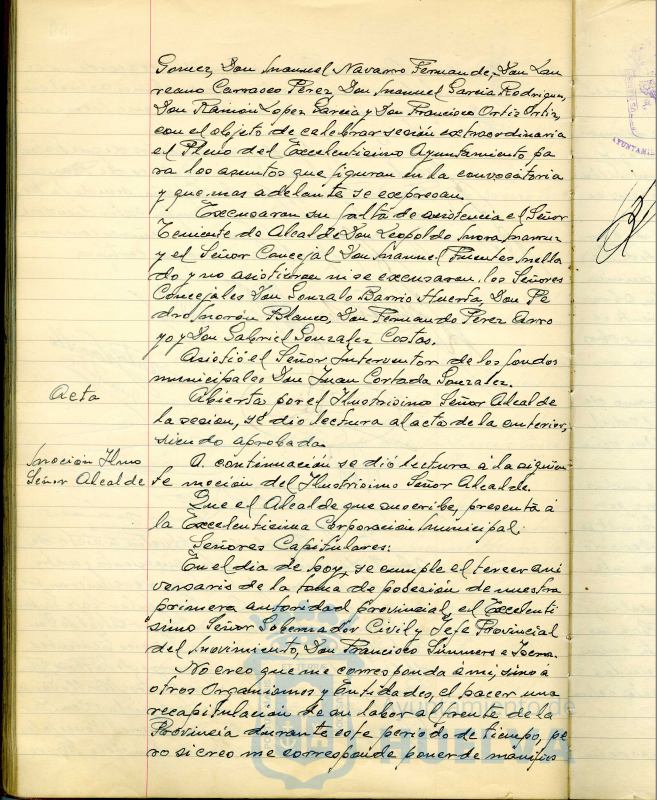 Gomez, Don Manuel Navarro Fernande, Don Lau
reano Carrasco Pérez, Don Manuel García Rodriguez,
Don Ramón Lopez García y Don Francisco Ortiz Ortiz,
con el objeto de celebrar sesión extraordinaria
el Pleno del Excelentisimo Ayuntamiento pa
ra los asuntos que figuran en la convocatoria
y que mas adelante se expresan.
Excusaron su falta de asistencia el Señor
Teniente de Alcalde Don Leopoldo Mora
y el Señor Concejal Don Manuel Fuentes Mella
do y no asistieron ni se excusaron, los Señores
Concejales Don Gonzalo Barrio Huerta, Don Pe
dro Morón Blanco, Don Fernando Pérez Arro
yo y Don Gabriel Gonzalez Costas.
Asistió el Señor Interventor de los fondos
municipales Don Juan Cortada Gonzalez.
Acta
Abierta por el Ilustrisimo Señor Alcalde
la sesion, se dio lectura al acta de la anterior,
siendo aprobada
Moción Ilmo
Señor Alcalde
A continuación se dió lectura á la siguien
te moción del Ilustrisimo Señor Alcalde.
Que el Alcalde que suscribe, presenta á
la Excelentisima Corporación Municipal.
Señores Capitulares:
En el dia de hoy, se cumple el tercer ani
versario de la toma de posesión de nuestra
primera autoridad provincial, el Excelenti
simo Señor Gobernador Civil y Jefe Provincial
del Movimiento, Don Francisco Summers e Isern.
No creo que me corresponda á mi, sino á
otros Organismos y Entidades, el hacer una
recapitulación de su labor al frente de la
Provincia durante este periodo de tiempo, pe
ro si creo me corresponde poner de manifies
Ayuntamiento de
HUELVA
AYUNTAMI